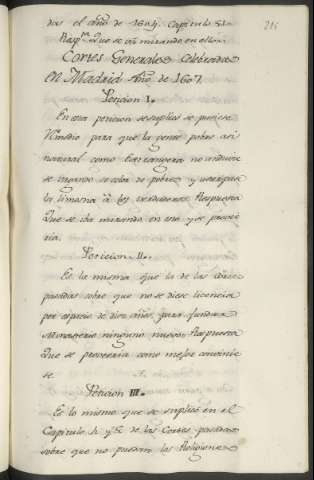 216
dió el año de 1604. Capitulo 51.
Resp.ta Que se vá mirando en ello.
Cortes Generales Celebradas
en Madrid Año de 1607.
Peticion I.
En esta peticion se suplica se pusiese
remedio para que la gente pobre asi
natural como Extrangera no anduviese
se
la limosna á los verdaderos. Respuesta
Que se iba mirando en eso y se provee
ria.
Peticion II.
Es la misma que la de las Cortes
pasadas sobre que no se diese licencia
por espacio de diez años, para fundar
Monasterio ninguno nuevo. Respuesta
Que se proveeria como mejor convinie
se.
Peticion III.
Es lo mismo que se suplicó en el
Capitulo 4 y 5 de las Cortes pasadas
sobre que no puedan las Religiones